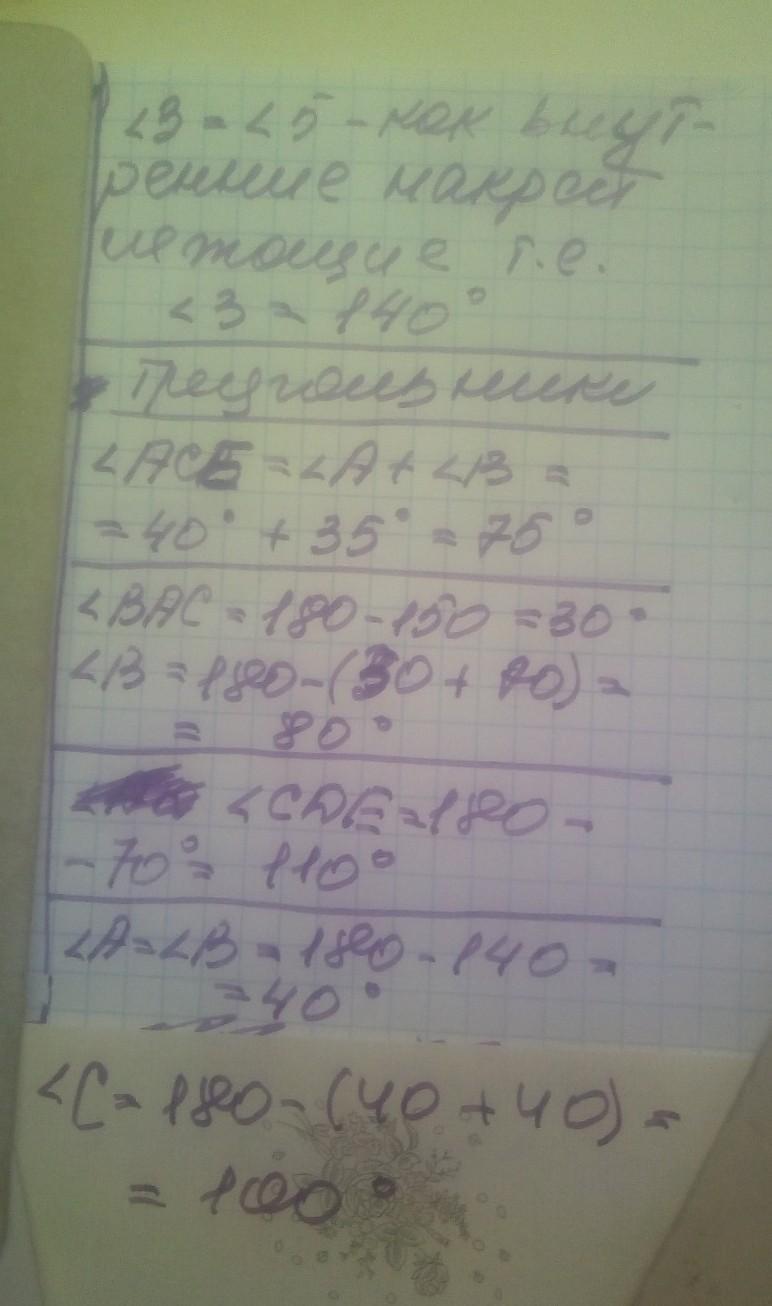 ∠3 = ∠5 - как внут-
ренние накрест
лежащие т.е.
∠3 = 140°
Треугольники
∠ACБ = ∠A + ∠B =
= 40° + 35° = 75°
∠BAC = 180 - 150 = 30°
∠B = 180 - (30 + 70) =
= 80°
∠CDE = 180 -
- 70° = 110°
∠A = ∠B = 180 - 140 =
= 40°
∠C = 180 - (40 + 40) =
= 100°